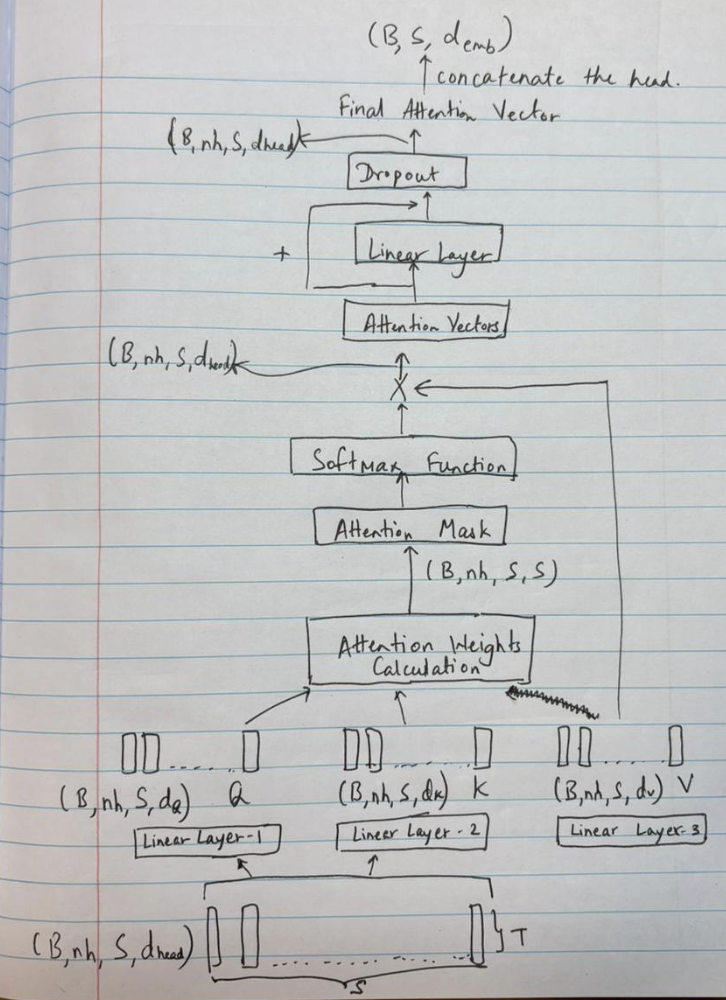 (B, S, demb)
concatenate the head.
Final Attention Vector
(B, nh, S, dhead)
Dropout
+
Linear Layer
Attention Vectors
(B, nh, S, dhead)
X
Softmax Function
Attention Mask
(B, nh, S, S)
Attention Weights
Calculation
..... ..... .....
(B, nh, S, dQ) Q (B, nh, S, dK) K (B, nh, S, dv) V
Linear Layer-1 Linear Layer-2 Linear Layer-3
(B, nh, S, dhead) ..... T
S